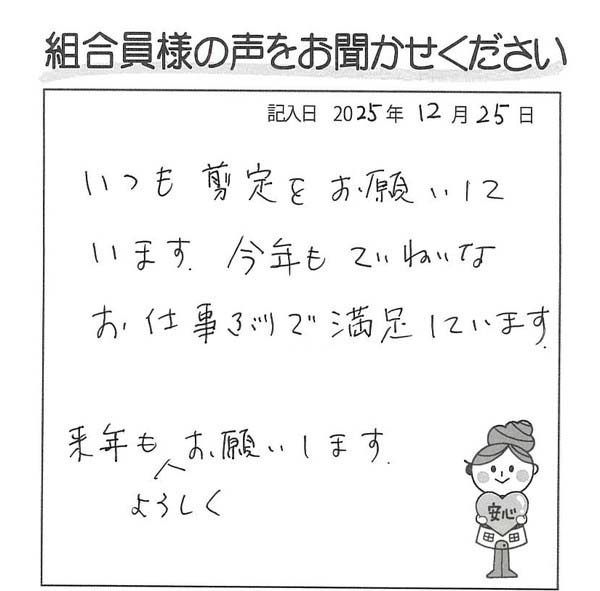 組合員様の声をお聞かせください
記入日 2025年 12月25日
いつも 剪定を お願いして
います. 今年も ていねいな
お仕事ぶりで 満足しています.
来年も お願いします.
よろしく
安心